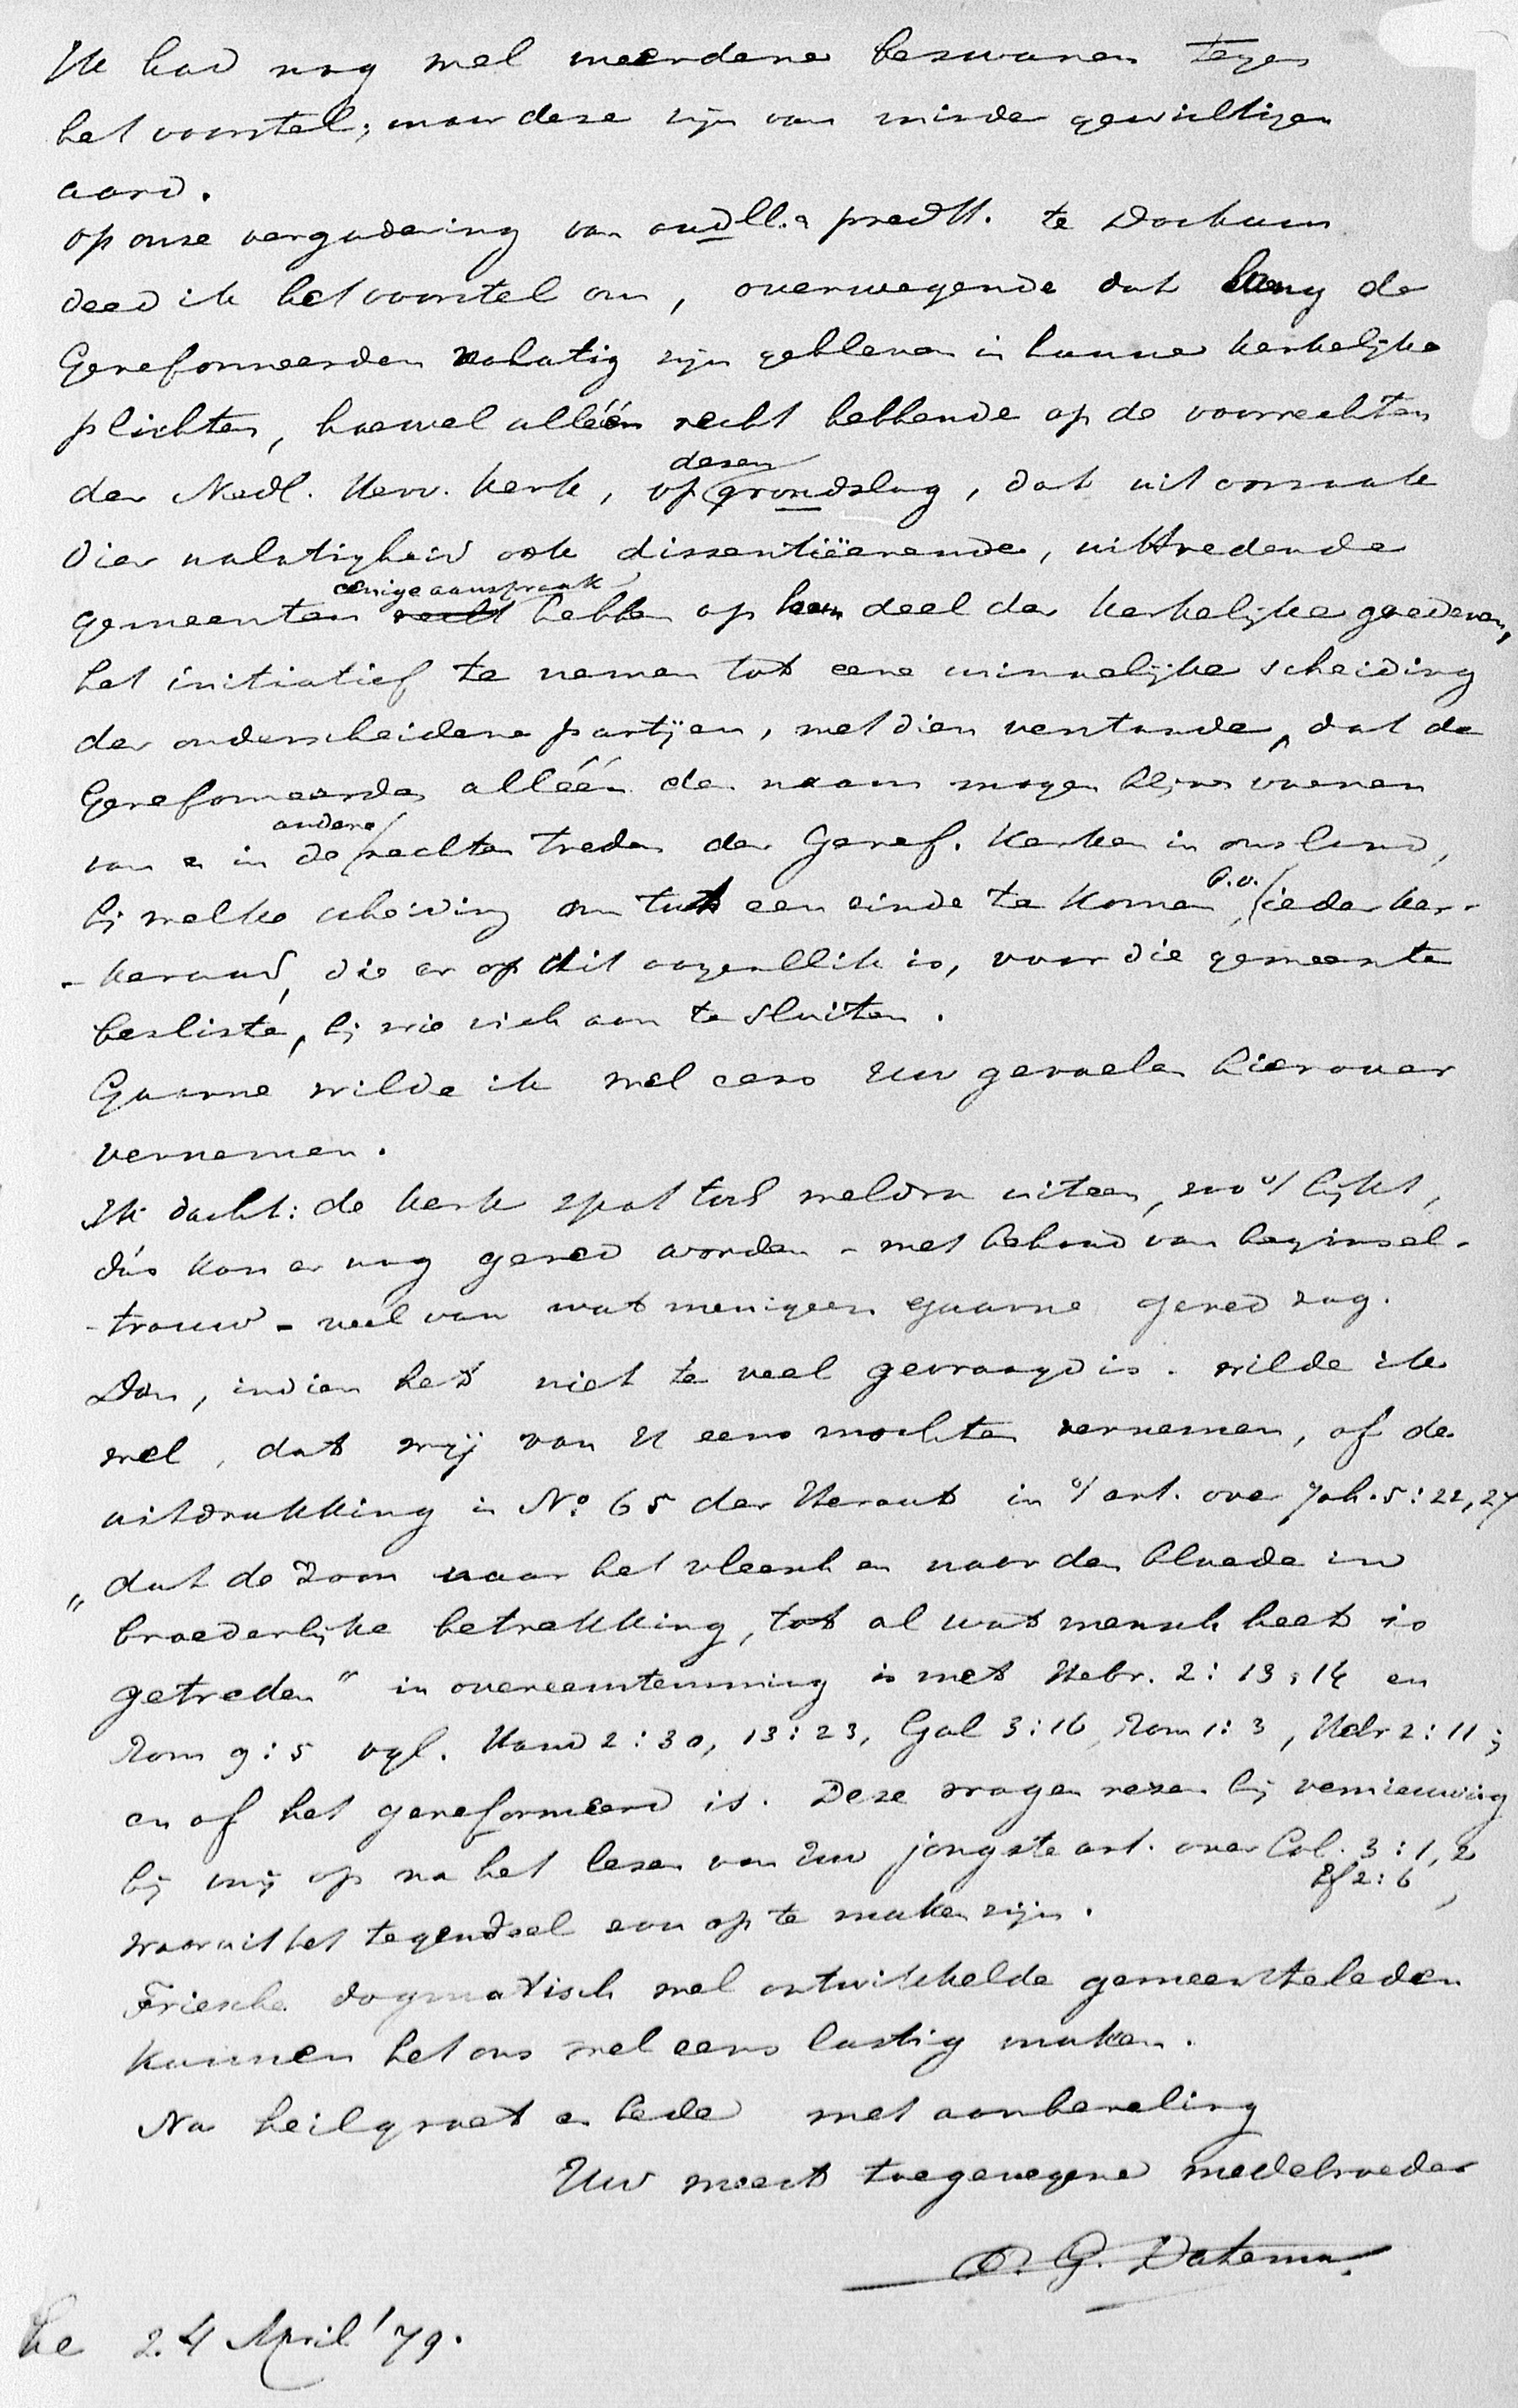 Ik had nog wel meerdere bezwaren tegen
het voorstel; maar deze zijn van minder gewichtigen
aard.
Op onze vergadering van oudll. & predtt. te Dockum
deed ik het voorstel om, overwegende dat lang de
Gereformeerden nalatig zijn gebleven in hunne kerkelijke
plichten, hoewel alléén recht hebbende op de voorrechten
der Nedl. Herv. Kerk, op dezen grondslag, dat uit oorzaak
dier nalatigheid ook dissentiëerende, uittredende
gemeenten eenige aanspraak hebben op hun deel der kerkelijke goederen,
het initiatief te nemen tot eene minnelijke scheiding
der onderscheidene partijen, met dien verstande, dat de
Gereformeerden alléén de naam mogen blijven voeren
van en in de andere rechten treden der Geref. Kerken in ons land,
bij welke scheiding om tot een einde te komen b.v. ieder ker-
-keraad, die er op dit oogenblik is, voor die gemeente
besliste, bij wie zich aan te sluiten.
Gaarne wilde ik wel eens Uw gevoelen hierover
vernemen.
Ik dacht: de kerk spat toch weldra uiteen, zoo 't lijkt,
dús kan er nog gered worden - met behoud van beginsel-
-trouw - veel van wat menigeen gaarne gered zag.
Dan, indien het niet te veel gevraagd is. wilde ik
wel, dat wij van U eens mochten vernemen, of de
uitdrukking in No. 65 der Heraut in 't art. over Joh. 5:22,27
"dat de Zoon naar het vleesch en naar den bloede in
broederlijke betrekking, tot al wat mensch heet is
getreden" in overeenstemming is met Hebr. 2:13, 14 en
Rom 9:5 vgl. Hand 2:30, 13:23, Gal 3:16, Rom 1:3, Hebr 2:11;
en of het gereformeerd is. Deze vragen rezen bij vernieuwing
bij mij op na het lezen van Uw jongste art. over Col. 3:1,2
Ef 2:6,
waaruit het tegendeel zou op te maken zijn.
Friesche dogmatisch wel ontwikkelde gemeenteleden
kunnen het ons wel eens lastig maken.
Na heilgroet en bede met aanbeveling
Uw meest toegenegene medebroeder
D. G. Datema.
24 April '79.